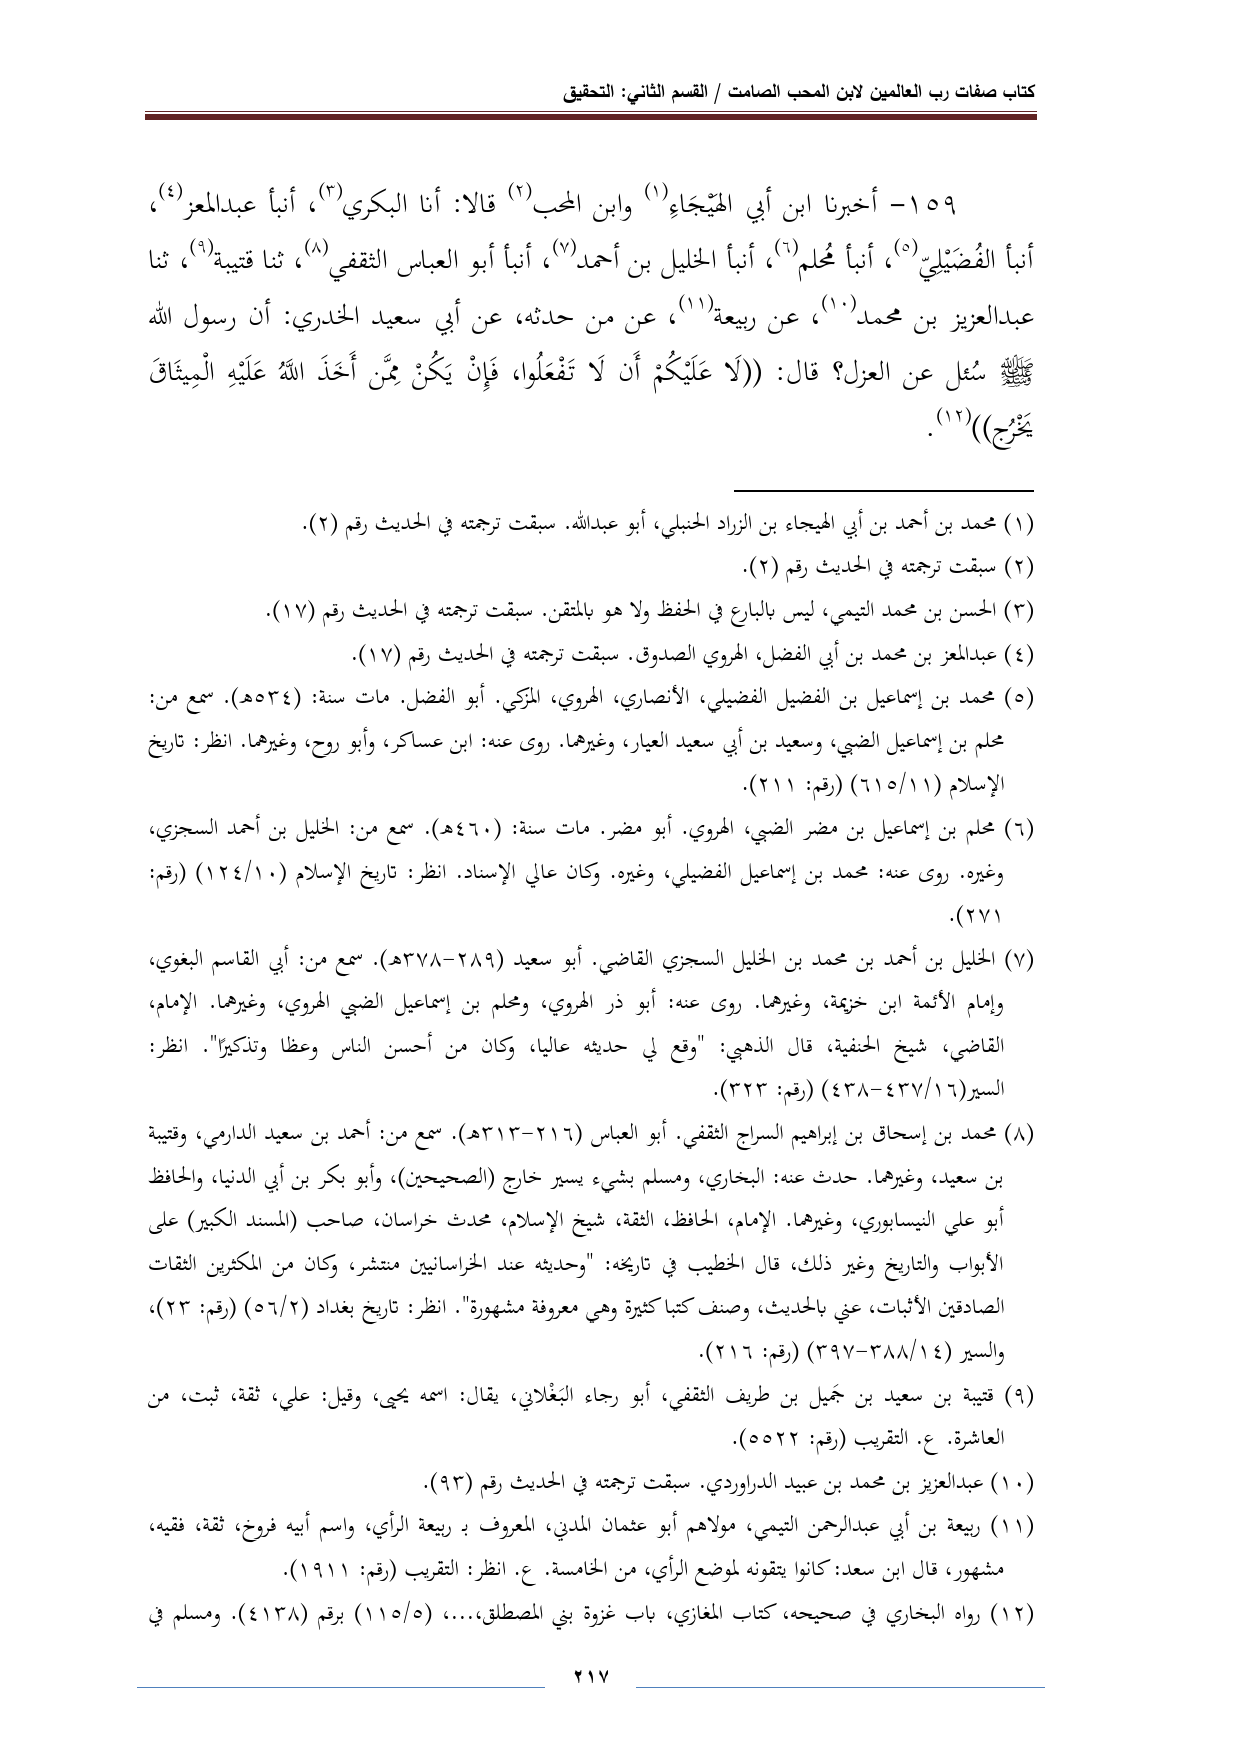 كتاب صفات رب العالمين لابن المحب الصامت / القسم الثاني: التحقيق
١٥٩- أخبرنا ابن أبي الهَيْجَاءِ(١) وابن المحب(٢) قالا: أنا البكري(٣)، أنبأ عبدالمعز(٤)،
أنبأ الفُضَيْلِيّ(٥)، أنبأ مُحلم(٦)، أنبأ الخليل بن أحمد(٧)، أنبأ أبو العباس الثقفي(٨)، ثنا قتيبة(٩)، ثنا
عبدالعزيز بن محمد(١٠)، عن ربيعة(١١)، عن من حدثه، عن أبي سعيد الخدري: أن رسول الله
ﷺ سُئل عن العزل؟ قال: ((لَا عَلَيْكُمْ أَن لَا تَفْعَلُوا، فَإِنْ يَكُنْ مِمَّن أَخَذَ اللَّهُ عَلَيْهِ الْمِيثَاقَ
يَخْرُج))(١٢).
(١) محمد بن أحمد بن أبي الهيجاء بن الزراد الحنبلي، أبو عبدالله. سبقت ترجمته في الحديث رقم (٢).
(٢) سبقت ترجمته في الحديث رقم (٢).
(٣) الحسن بن محمد التيمي، ليس بالبارع في الحفظ ولا هو بالمتقن. سبقت ترجمته في الحديث رقم (١٧).
(٤) عبدالمعز بن محمد بن أبي الفضل، الهروي الصدوق. سبقت ترجمته في الحديث رقم (١٧).
(٥) محمد بن إسماعيل بن الفضيل الفضيلي، الأنصاري، الهروي، المزكي. أبو الفضل. مات سنة: (٥٣٤هـ). سمع من:
محلم بن إسماعيل الضبي، وسعيد بن أبي سعيد العيار، وغيرهما. روى عنه: ابن عساكر، وأبو روح، وغيرهما. انظر: تاريخ
الإسلام (٦١٥/١١) (رقم: ٢١١).
(٦) محلم بن إسماعيل بن مضر الضبي، الهروي. أبو مضر. مات سنة: (٤٦٠هـ). سمع من: الخليل بن أحمد السجزي،
وغيره. روى عنه: محمد بن إسماعيل الفضيلي، وغيره. وكان عالي الإسناد. انظر: تاريخ الإسلام (١٢٤/١٠) (رقم:
٢٧١).
(٧) الخليل بن أحمد بن محمد بن الخليل السجزي القاضي. أبو سعيد (٢٨٩-٣٧٨هـ). سمع من: أبي القاسم البغوي،
وإمام الأئمة ابن خزيمة، وغيرهما. روى عنه: أبو ذر الهروي، ومحلم بن إسماعيل الضبي الهروي، وغيرهما. الإمام،
القاضي، شيخ الحنفية، قال الذهبي: "وقع لي حديثه عاليا، وكان من أحسن الناس وعظا وتذكيرًا". انظر:
السير(٤٣٧/١٦-٤٣٨) (رقم: ٣٢٣).
(٨) محمد بن إسحاق بن إبراهيم السراج الثقفي. أبو العباس (٢١٦-٣١٣هـ). سمع من: أحمد بن سعيد الدارمي، وقتيبة
بن سعيد، وغيرهما. حدث عنه: البخاري، ومسلم بشيء يسير خارج (الصحيحين)، وأبو بكر بن أبي الدنيا، والحافظ
أبو علي النيسابوري، وغيرهما. الإمام، الحافظ، الثقة، شيخ الإسلام، محدث خراسان، صاحب (المسند الكبير) على
الأبواب والتاريخ وغير ذلك، قال الخطيب في تاريخه: "وحديثه عند الخراسانيين منتشر، وكان من المكثرين الثقات
الصادقين الأثبات، عني بالحديث، وصنف كتبا كثيرة وهي معروفة مشهورة". انظر: تاريخ بغداد (٥٦/٢) (رقم: ٢٣)،
والسير (٣٨٨/١٤-٣٩٧) (رقم: ٢١٦).
(٩) قتيبة بن سعيد بن جَميل بن طريف الثقفي، أبو رجاء البَغْلاني، يقال: اسمه يحيى، وقيل: علي، ثقة، ثبت، من
العاشرة. ع. التقريب (رقم: ٥٥٢٢).
(١٠) عبدالعزيز بن محمد بن عبيد الدراوردي. سبقت ترجمته في الحديث رقم (٩٣).
(١١) ربيعة بن أبي عبدالرحمن التيمي، مولاهم أبو عثمان المدني، المعروف بـ ربيعة الرأي، واسم أبيه فروخ، ثقة، فقيه،
مشهور، قال ابن سعد: كانوا يتقونه لموضع الرأي، من الخامسة. ع. انظر: التقريب (رقم: ١٩١١).
(١٢) رواه البخاري في صحيحه، كتاب المغازي، باب غزوة بني المصطلق،...، (١١٥/٥) برقم (٤١٣٨). ومسلم في
٢١٧